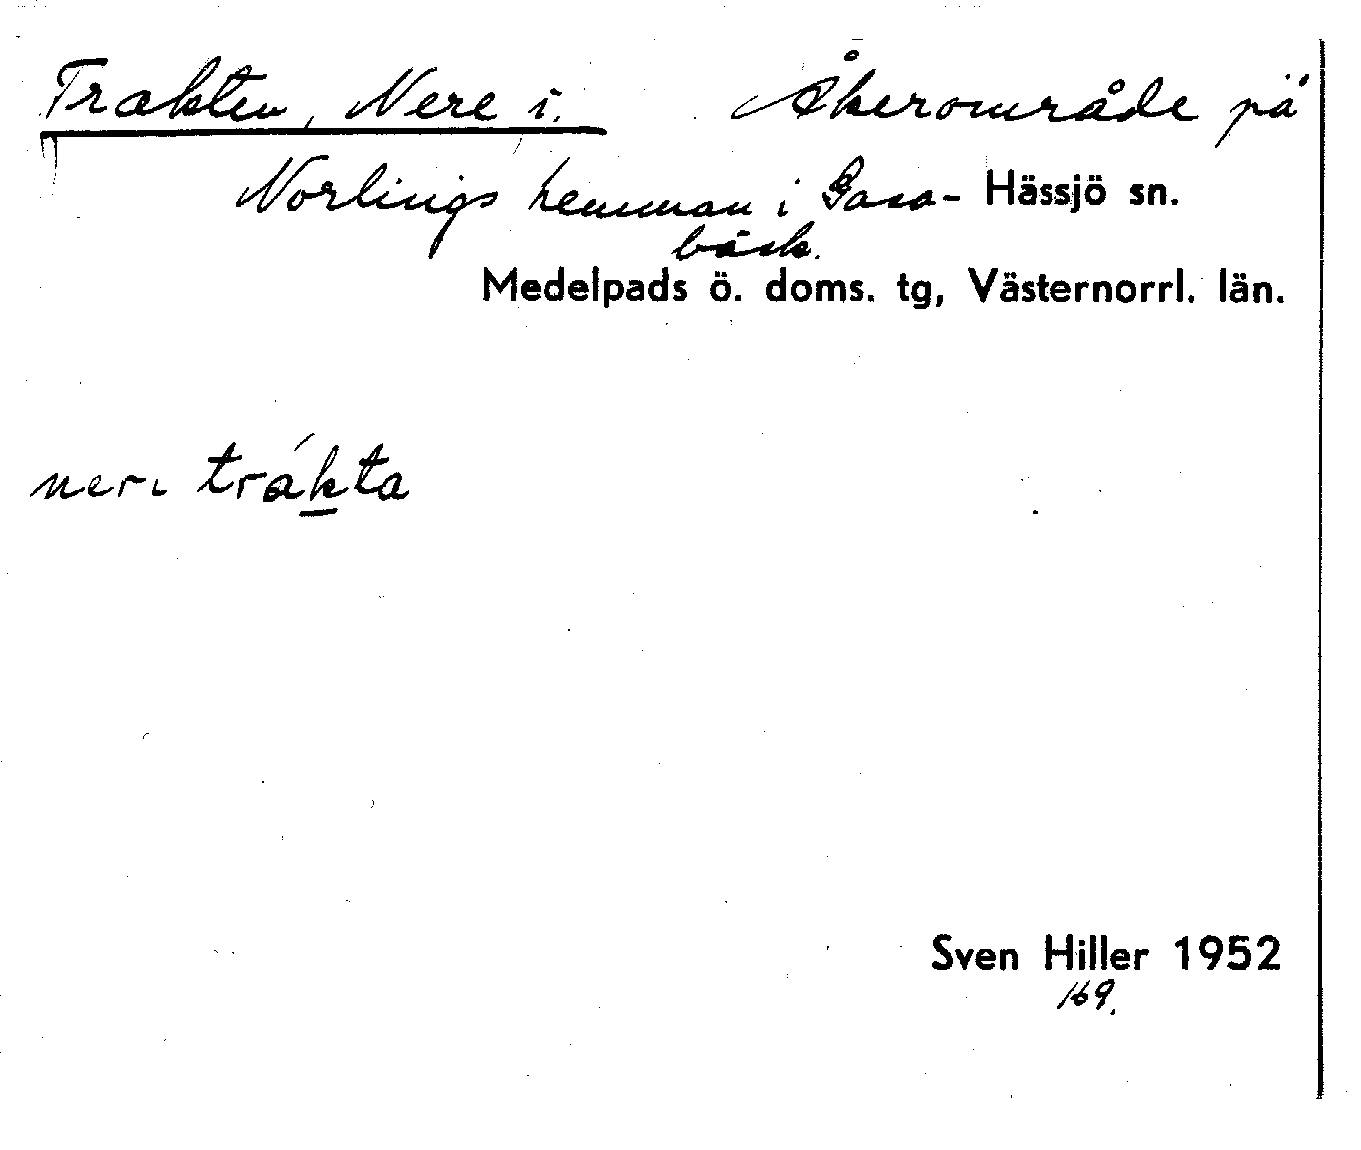 Trakten, Nere i. Åkerområde på
Norlings hemman i Gasa- Hässjö sn.
bäck.
Medelpads ö. doms. tg, Västernorrl. län.
neri trákta
Sven Hiller 1952
169.